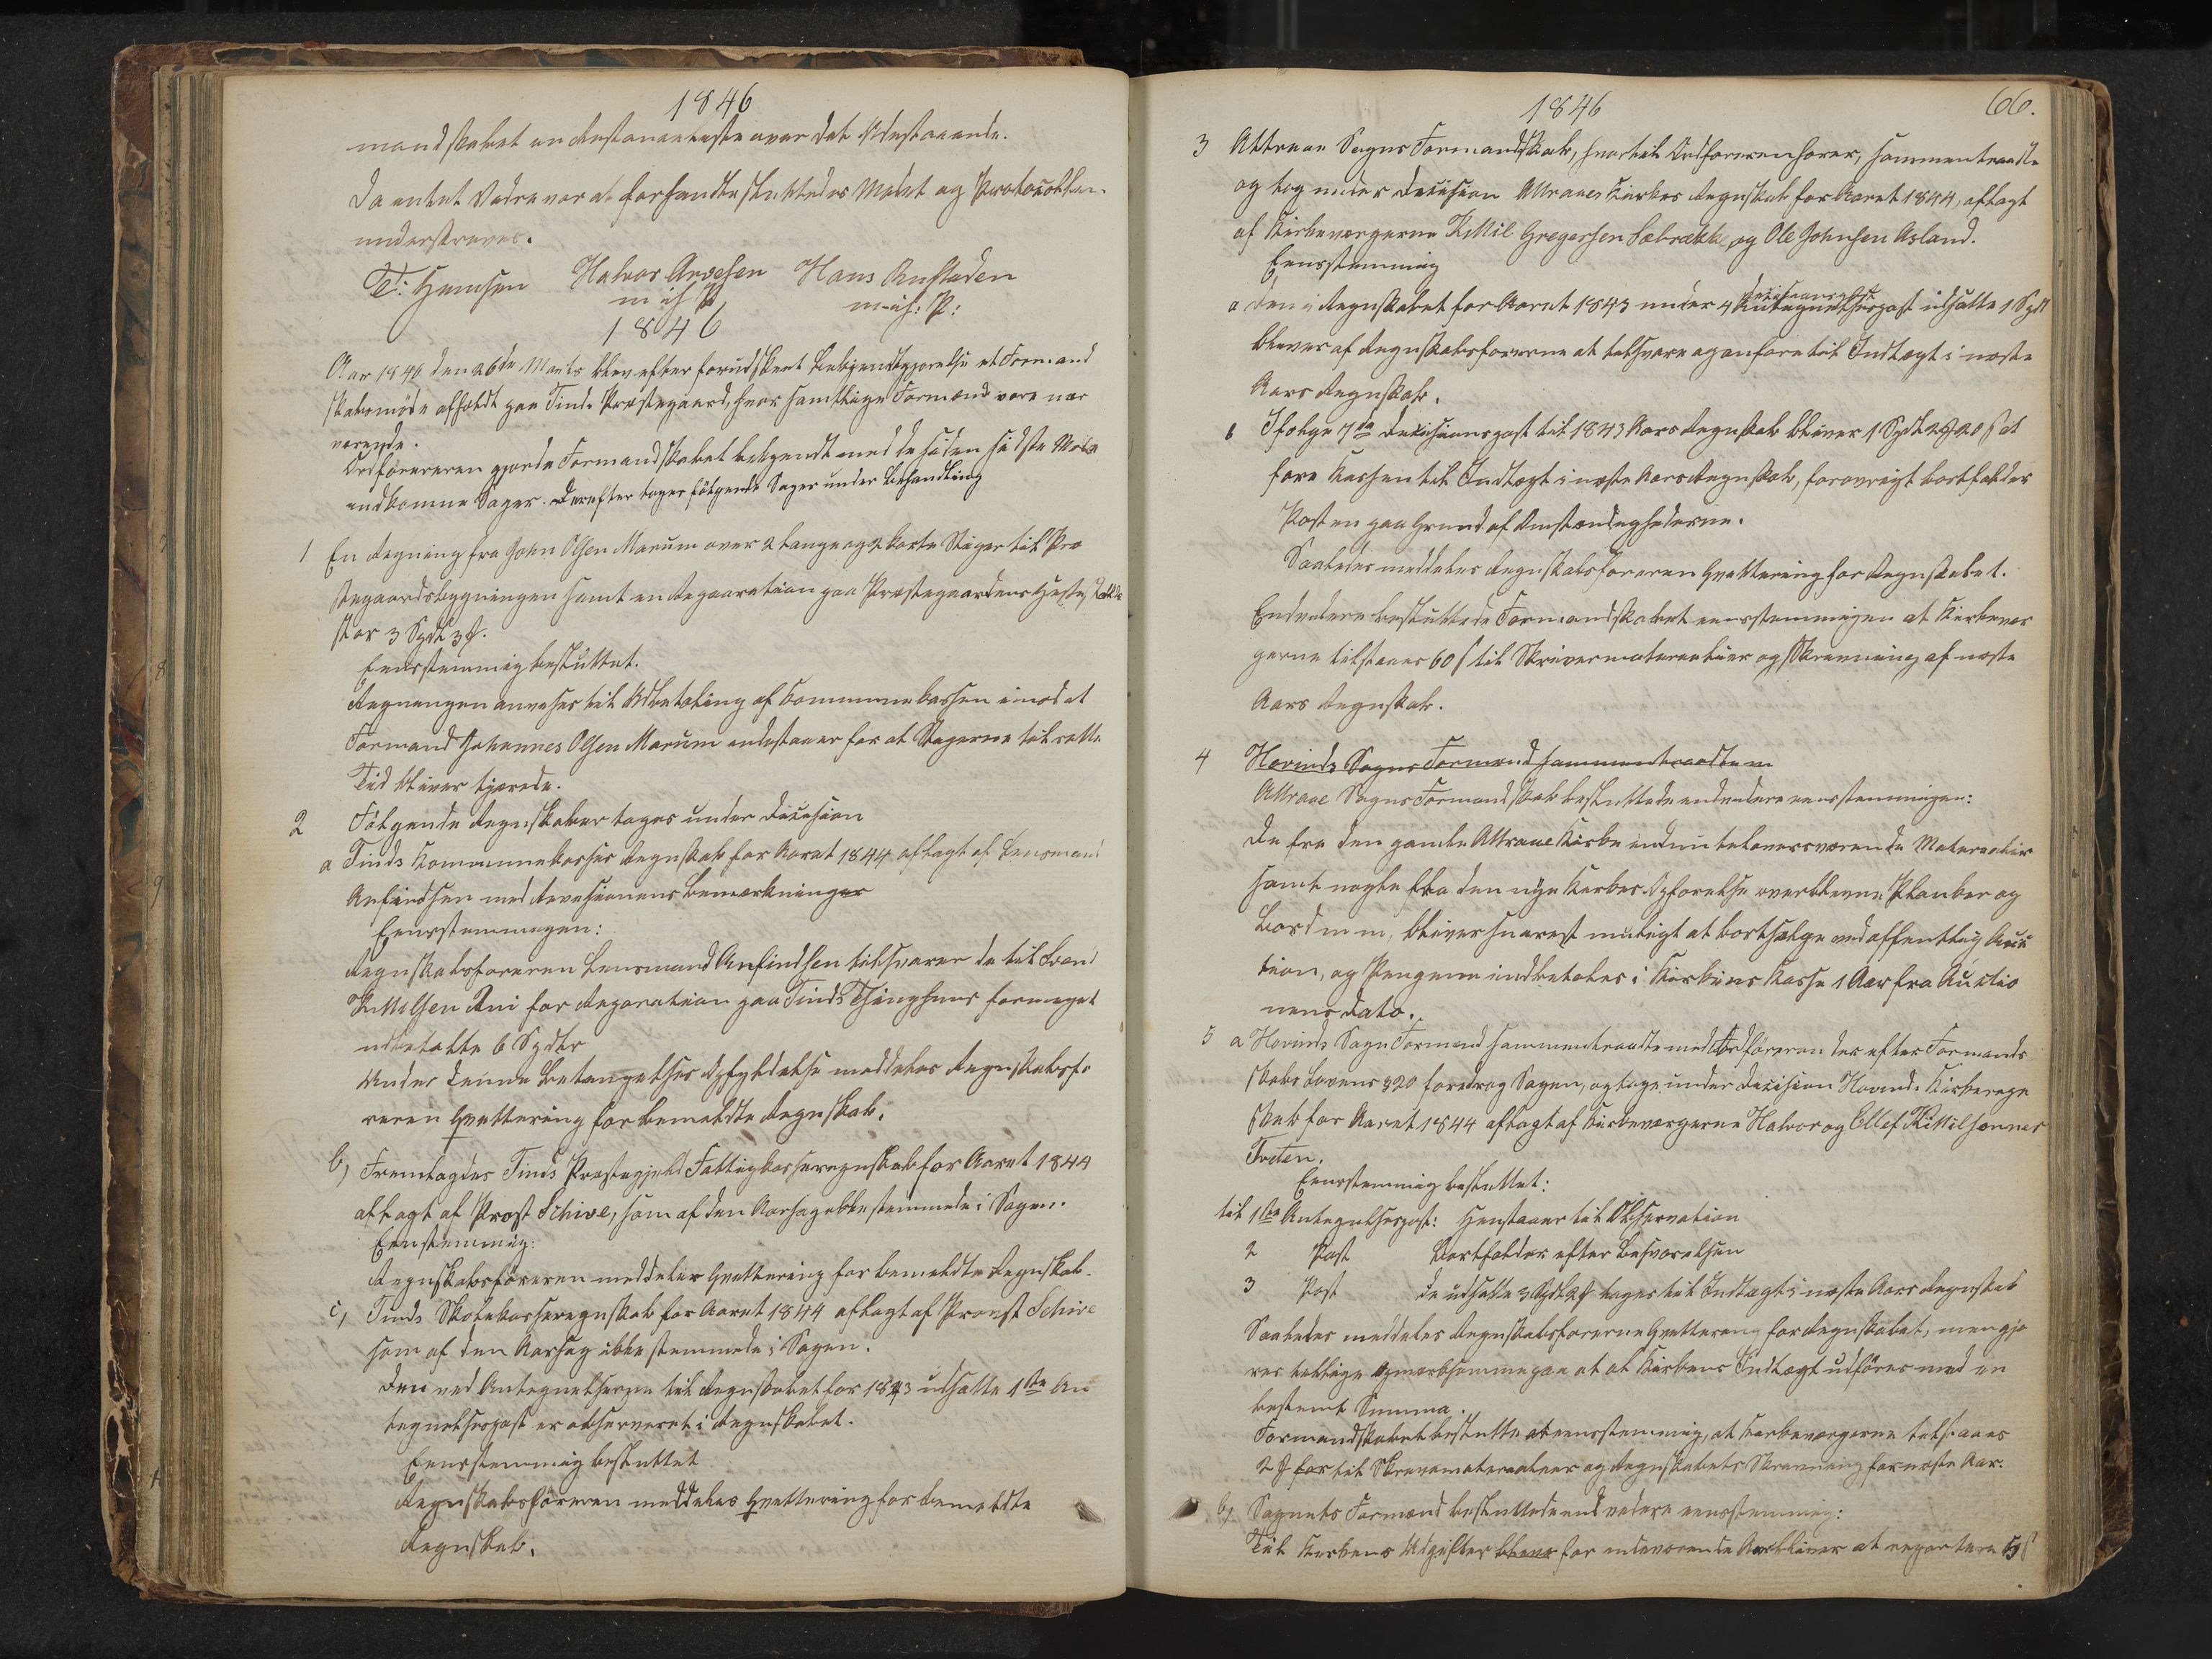 1846
mandskabet en Restanceliste over det Udestaaende.
Da intet Videre var at forhandle sluttedes Mødet og Protocollen
underskreves.
T: Hemsen Halvor Arvesen Hans Rustaden
m i h P m. i h: P:
1846
Aar 1846 den 26de Marts blev efter forudskeet Bekjendtgjørelse et Formand
skabsmøde afholdt paa Tinds Præstegaard, hvor samtlige Formænd vare nær
værende.
Ordføreren gjorde Formandskabet bekjendt med de siden sidste Møde
indkomne Sager. Derefter toges følgende Sager under Behandling
1 En Regning fra John Olsen Marum over 2 lange og 2 korte Stiger til Præ
stegaardsbygningen samt en Reparation paa Præstegaardens Hestestald
stor 3 Spdl 3 ₰.
Eenstemmig besluttet.
Regningen anvises til Udbetaling af Communekassen imod at
Formand Johannes Olsen Marum indestaaer for at Stigerne til rette
Tid bliver tjærede.
2 Følgende Regnskaber toges under Decision
a Tinds Kommunekasses Regnskab for Aaret 1844 aflagt af Lensmand
Anfindsen med Revisionens Bemærkninger
Eenstemmigen:
Regnskabsføreren Lensmand Anfindsen tilsvarer de til Svend
Kittilsen Rui for Reparation paa Tinds Thinghuus formeget
udbetalte 6 Spdlr
Under denne Betingelses Opfyldelse meddeles Regnskabsfø
reren Qvittering for bemeldte Regnskab.
b, Fremlagdes Tinds Præstegjelds Fattigkasseregnskab for Aaret 1844
aflagt af Provst Schive, som af den Aarsag ikke stemmede i Sagen.
Eenstemmig:
Regnskabsføreren meddeles Qvittering for bemeldte Regnskab.
c, Tinds Skolekasseregnskab for Aaret 1844 aflagt af Provst Schive
som af den Aarsag ikke stemmede i Sagen.
Den ved Antegnelserne til Regnskabet for 1843 udsatte 1ste An
tegnelsespost er observeret i Regnskabet.
Eenstemmig besluttet
Regnskabsføreren meddeles Qvittering for bemeldte
Regnskab.
1846 66.
3 Attraae Sogns Formandskab, hvortil Ordføreren hører, sammentraadte
og tog under Decision Attraaes Kirkes Regnskab for Aaret 1844, aflagt
af Kirkeværgerne Kittil Gregersen Sæbrække og Ole Johnsen Asland.
Eenstemmig
a Den i Regnskabet for Aaret 1843 under 4 Antegnelsespost udsatte 1 Spdl
bliver af Regnskabsførerne at tilsvare og anføre til Indtægt i næste
Aars Regnskab.
b Ifølge 7de Decisionspost til 1843 Aars Regnskab bliver 1 Spdl 2 ₰ 20 ß at
føre Kassen til Indtægt i næste Aars Regnskab, forøvrigt bortfalder
Posten paa Grund af Omstændighederne.
Saaledes meddeles Regnskabsføreren Qvittering for Regnskabet.
Endvidere besluttede Formandskabet eenstemmigen at Kirkevær
gerne tilstaaes 60 ß til Skrivermaterialier og Skrivning af næste
Aars Regnskab.
4 Hovinds Sogns Formænd sammentraadte m
Attraae Sogns Formandskab besluttede endvidere eenstemmigen:
De fra den gamle Attraae Kirke endnu tiloversværende Materialier
samt nogle fra den nye Kirkes Opførelse overblevne Planker og
Bord m m, bliver snarest muligt at bortsælge ved offentlig Auc
tion, og Pengene indbetales i Kirkens Kasse 1 Aar fra Auctio
nens dato.
5 a Hovinds Sogns Formænd sammentraadte med Ordføreren der efter Formands
skabs Lovens § 20 foredrog Sagen, og toge under Decision Hovinds Kirkeregn
skab for Aaret 1844 aflagt af Kirkeværgerne Halvor og Ellef Kittilsønner
Traten.
Eenstemmig besluttet:
til 1ste Antegnelsespost: Henstaaer til Observation
2 Post Bortfalder efter Besvarelsen
3 Post De udsatte 3 Spdl 2 ₰ tages til Indtægt i næste Aars Regnskab
Saaledes meddeles Regnskabsførerne Qvittering for Regnskabet, men gjø
res tillige opmærksomme paa at at Kirkens Indtægt udføres med en
bestemt Summa.
Formandskabet beslutte at eenstemmig, at Kirkeværgerne tilstaaes
2 ₰ for til Skrivematerialier og Regnskabets Skrivning for næste Aar.
b, Sognets Formænd besluttede endvidere eenstemmig:
Til Kirkens Udgifter bliver for indeværende Aar bliver at repartere